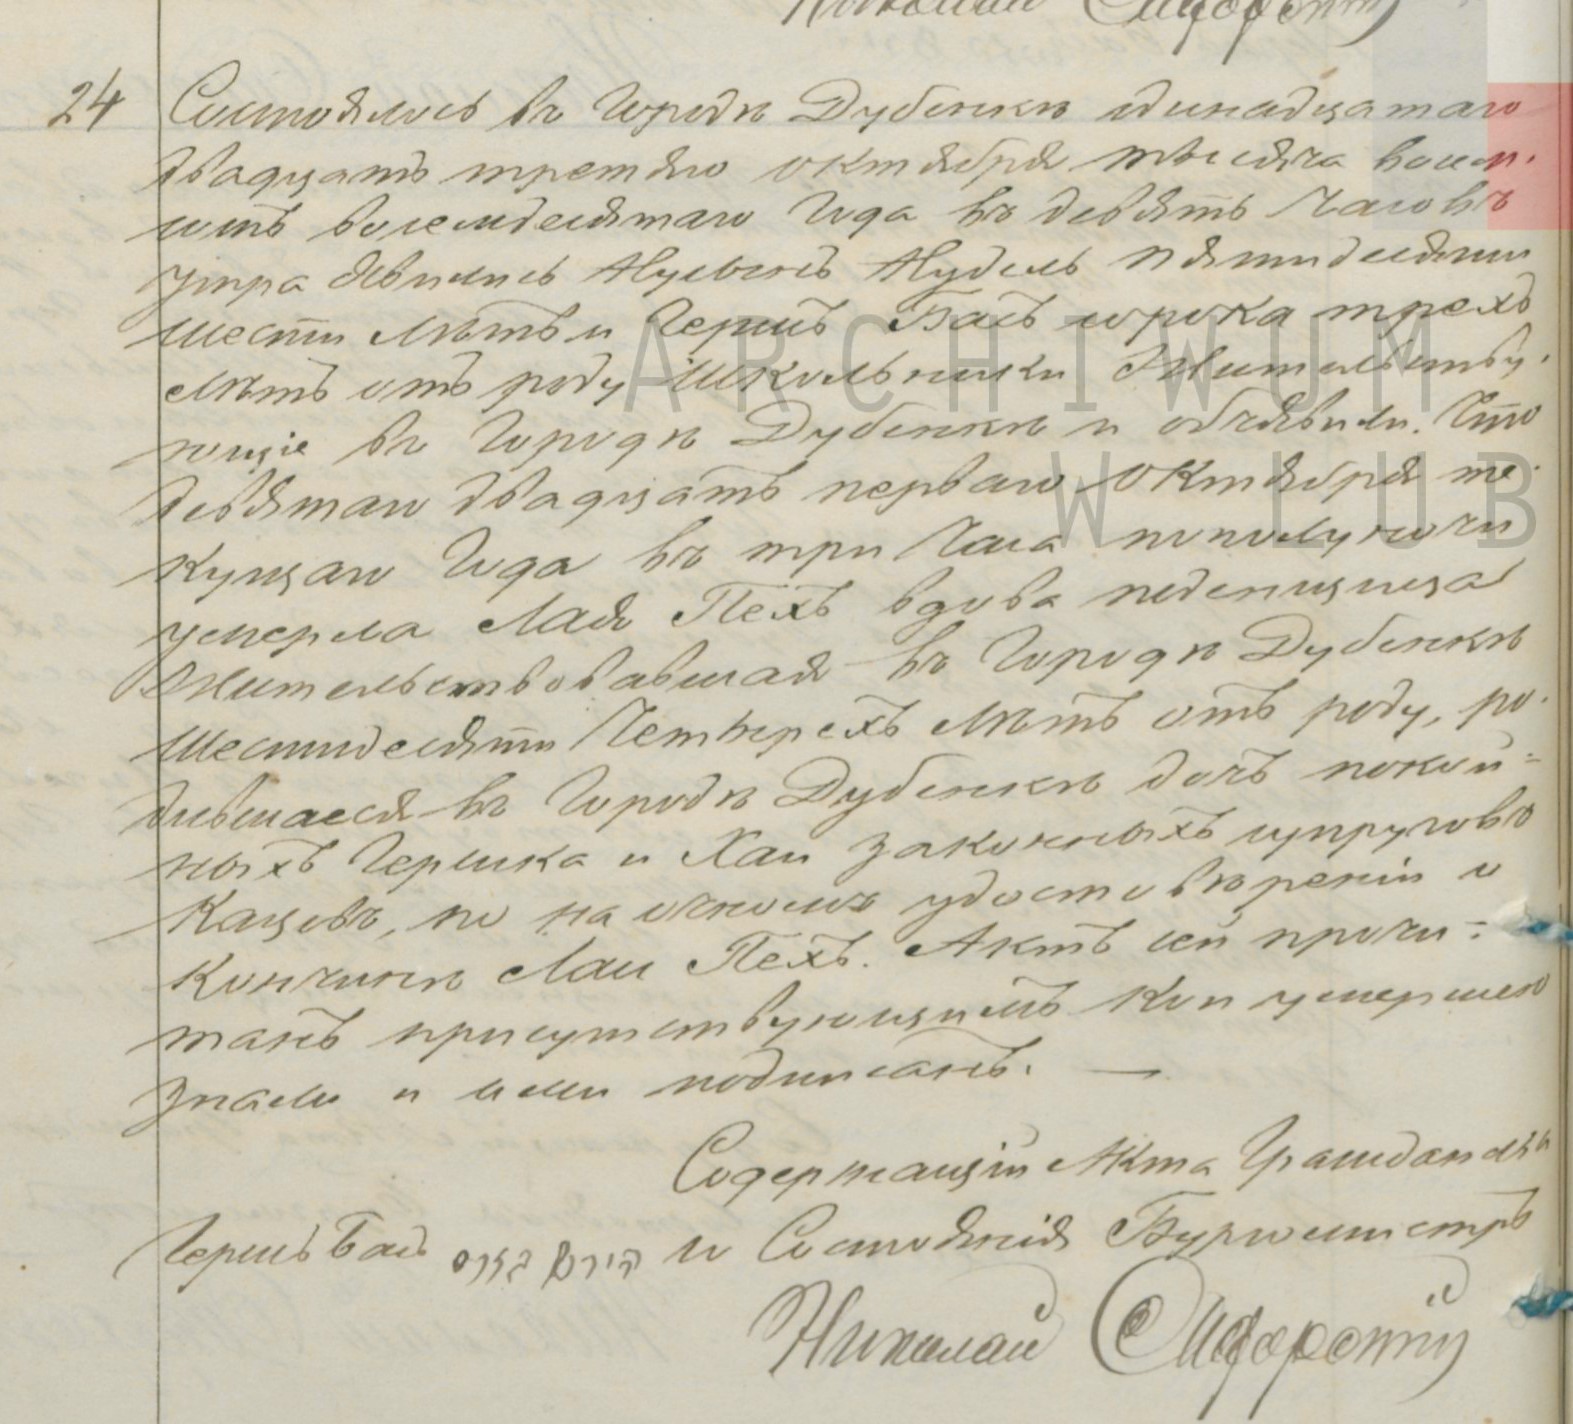 Николай Сидорский
24 Состоялось въ Городѣ Дубенкѣ одинадцатаго
двадцать третьяго октября тысяча восем-
сотъ восемдесятаго года въ девять часовъ
утра явились Нусынъ Нудель пятидесяти
шести лѣтъ и Гершъ Басъ сорока трехъ
лѣтъ отъ роду Школьники жительству-
ющіе въ Городѣ Дубенкѣ и объявили. Что
девятаго двадцать перваго октября те-
кущаго года въ три часа пополуночи
умерла Лая Пехъ вдова поденщица
жительствовавшая въ Городѣ Дубенкѣ
шестидесяти четырехъ лѣтъ отъ роду, ро-
дившаеся въ Городѣ Дубенкѣ дочь покой-
ныхъ Гершка и Хаи законныхъ супруговъ
Кацовъ, по наочномъ удостовѣреніи о
кончинѣ Лаи Пехъ. Актъ сей прочи-
танъ присутствующимъ кои умершею
знали и ими подписанъ. —
Содержащій Акта Гражданска
Гершъ Басъ הירש באס го Состоянія Бургомистръ
Николай Сидорский
ARCHIWUM
W LUB